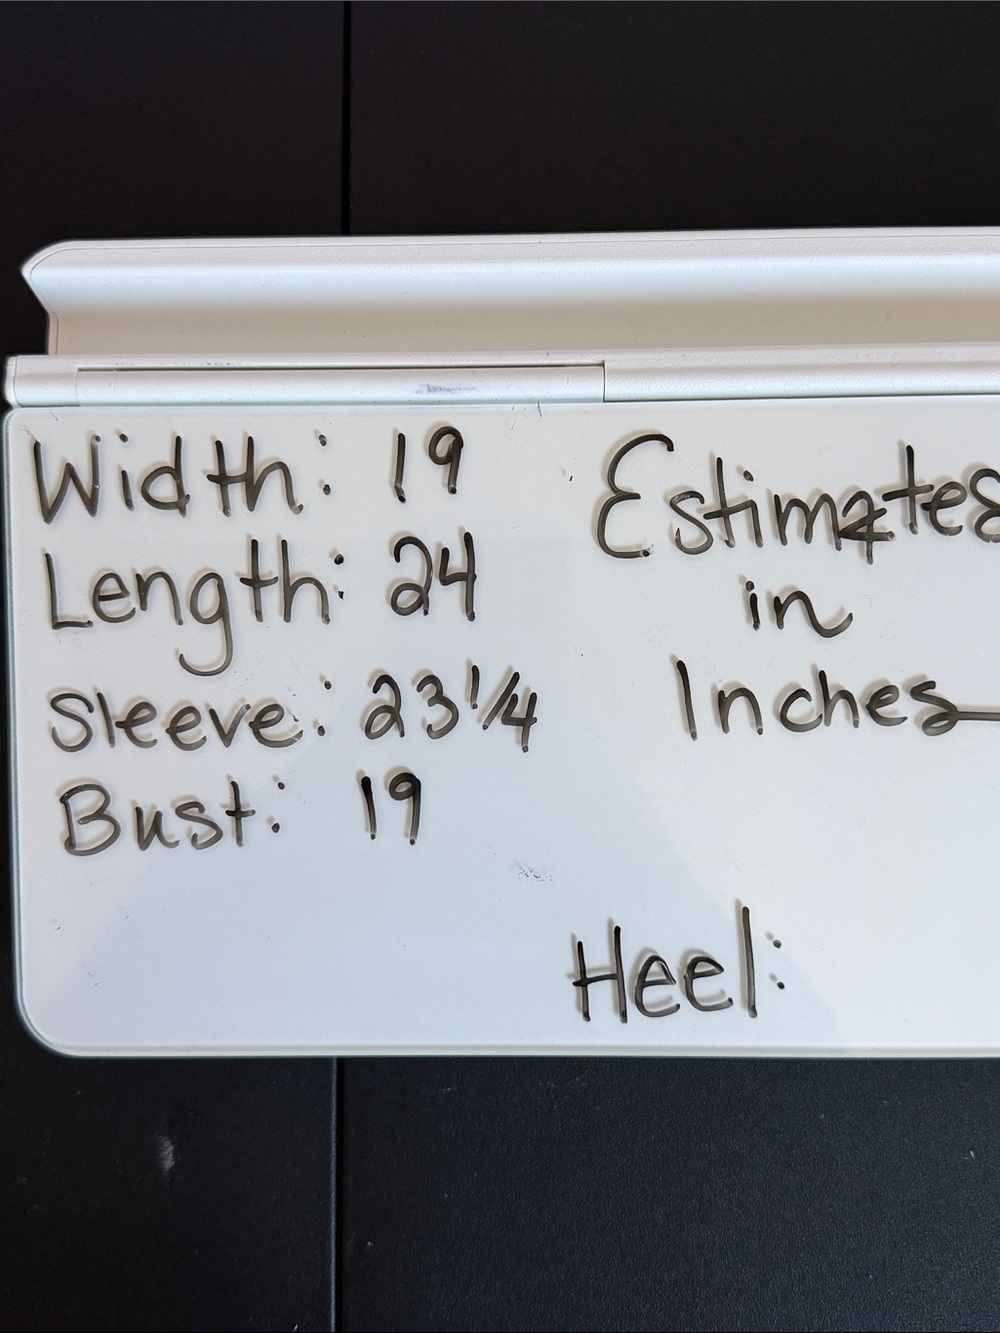 Width: 19
Length: 24
Sleeve: 23 1/4
Bust: 19
Estimates
in
Inches
Heel: